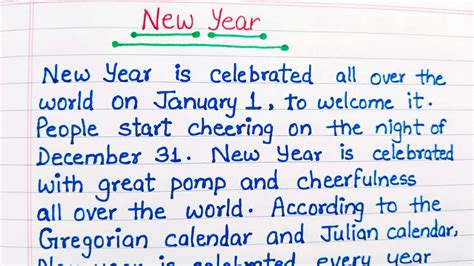 New Year
New Year is celebrated all over the
world on January 1, to welcome it.
People start cheering on the night of
December 31. New Year is celebrated
with great pomp and cheerfulness
all over the world. According to the
Gregorian calendar and Julian calendar,
New year is celebrated every year